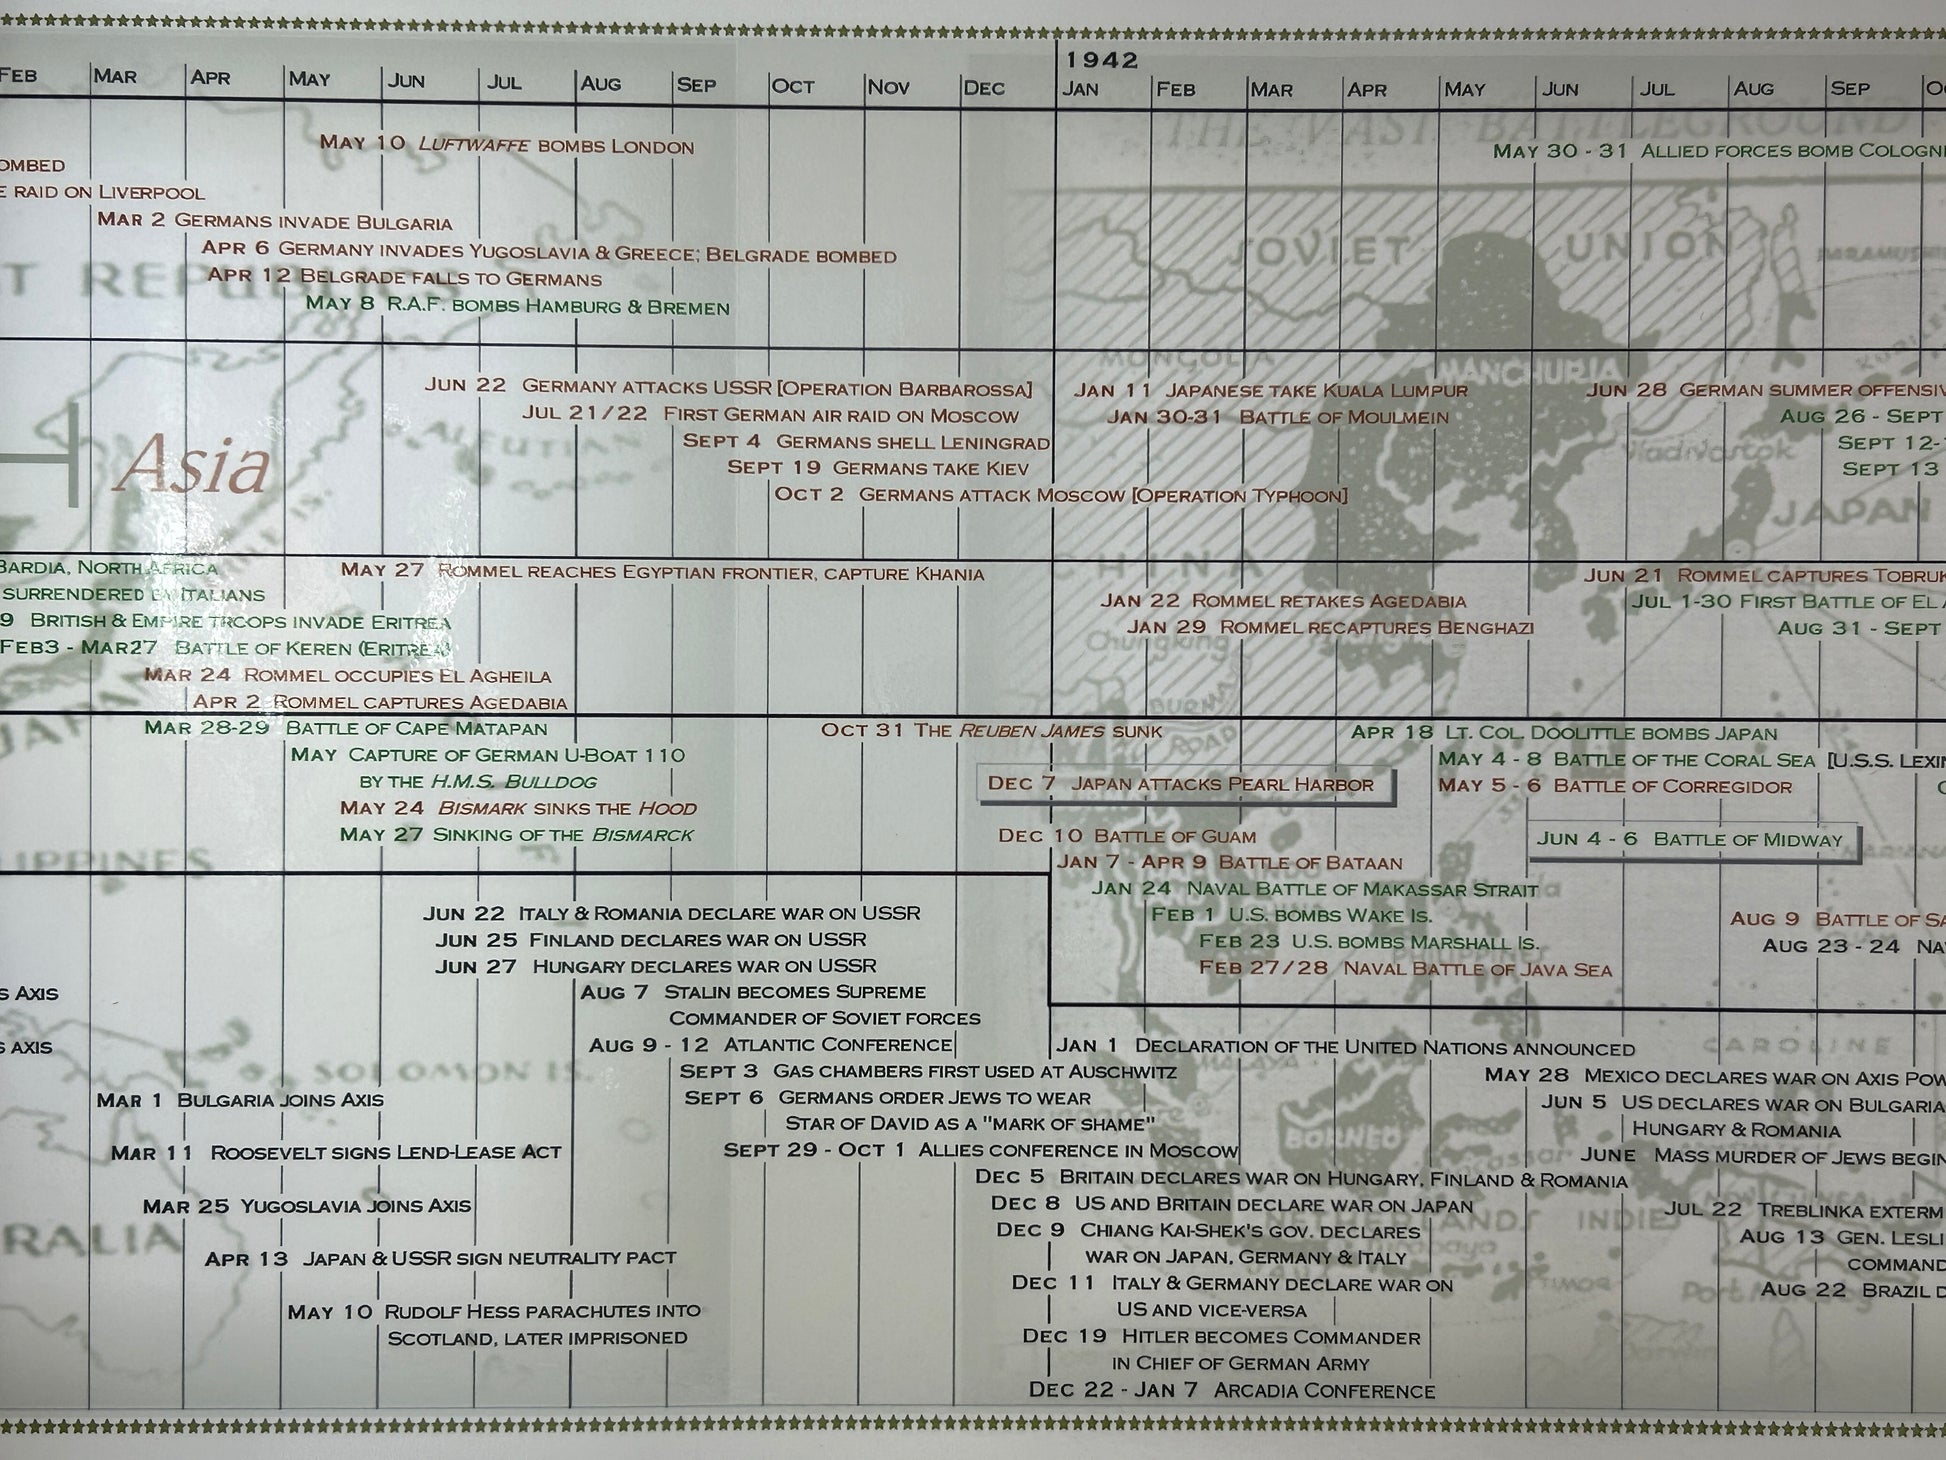 1942
FEB MAR APR MAY JUN JUL AUG SEP OCT NOV DEC JAN FEB MAR APR MAY JUN JUL AUG SEP
THE VAST BATTLEGROUND
MAY 10 LUFTWAFFE BOMBS LONDON
MAY 30 - 31 ALLIED FORCES BOMB COLOGN
OMBED
E RAID ON LIVERPOOL
MAR 2 GERMANS INVADE BULGARIA
APR 6 GERMANY INVADES YUGOSLAVIA & GREECE; BELGRADE BOMBED
APR 12 BELGRADE FALLS TO GERMANS
MAY 8 R.A.F. BOMBS HAMBURG & BREMEN
SOVIET UNION
MONGOLIA
MANCHURIA
JUN 22 GERMANY ATTACKS USSR [OPERATION BARBAROSSA]
JAN 11 JAPANESE TAKE KUALA LUMPUR
JUN 28 GERMAN SUMMER OFFENSIV
JUL 21/22 FIRST GERMAN AIR RAID ON MOSCOW
JAN 30-31 BATTLE OF MOULMEIN
AUG 26 - SEPT
SEPT 4 GERMANS SHELL LENINGRAD
SEPT 12-
ALEUTIAN
Vladivostok
Asia
SEPT 19 GERMANS TAKE KIEV
SEPT 13
OCT 2 GERMANS ATTACK MOSCOW [OPERATION TYPHOON]
JAPAN
CHINA
BARDIA, NORTH AFRICA
MAY 27 ROMMEL REACHES EGYPTIAN FRONTIER, CAPTURE KHANIA
JUN 21 ROMMEL CAPTURES TOBRUK
SURRENDERED BY ITALIANS
JAN 22 ROMMEL RETAKES AGEDABIA
JUL 1-30 FIRST BATTLE OF EL A
9 BRITISH & EMPIRE TROOPS INVADE ERITREA
JAN 29 ROMMEL RECAPTURES BENGHAZI
AUG 31 - SEPT
Chungking
FEB3 - MAR27 BATTLE OF KEREN (ERITREA)
MAR 24 ROMMEL OCCUPIES EL AGHEILA
APR 2 ROMMEL CAPTURES AGEDABIA
BURMA
ROAD
MAR 28-29 BATTLE OF CAPE MATAPAN
OCT 31 THE REUBEN JAMES SUNK
APR 18 LT. COL. DOOLITTLE BOMBS JAPAN
MAY CAPTURE OF GERMAN U-BOAT 110
MAY 4 - 8 BATTLE OF THE CORAL SEA [U.S.S. LEXI
BY THE H.M.S. BULLDOG
DEC 7 JAPAN ATTACKS PEARL HARBOR
MAY 5 - 6 BATTLE OF CORREGIDOR
MAY 24 BISMARK SINKS THE HOOD
MAY 27 SINKING OF THE BISMARCK
DEC 10 BATTLE OF GUAM
JUN 4 - 6 BATTLE OF MIDWAY
JAN 7 - APR 9 BATTLE OF BATAAN
JAN 24 NAVAL BATTLE OF MAKASSAR STRAIT
FEB 1 U.S. BOMBS WAKE IS.
AUG 9 BATTLE OF SA
FEB 23 U.S. BOMBS MARSHALL IS.
AUG 23 - 24 NA
FEB 27/28 NAVAL BATTLE OF JAVA SEA
JUN 22 ITALY & ROMANIA DECLARE WAR ON USSR
JUN 25 FINLAND DECLARES WAR ON USSR
JUN 27 HUNGARY DECLARES WAR ON USSR
S AXIS
AUG 7 STALIN BECOMES SUPREME
COMMANDER OF SOVIET FORCES
S AXIS
AUG 9 - 12 ATLANTIC CONFERENCE
JAN 1 DECLARATION OF THE UNITED NATIONS ANNOUNCED
CAROLINE
MALAYA
SOLOMON IS.
SEPT 3 GAS CHAMBERS FIRST USED AT AUSCHWITZ
MAY 28 MEXICO DECLARES WAR ON AXIS POW
MAR 1 BULGARIA JOINS AXIS
SEPT 6 GERMANS ORDER JEWS TO WEAR
JUN 5 US DECLARES WAR ON BULGARIA
STAR OF DAVID AS A "MARK OF SHAME"
HUNGARY & ROMANIA
BORNEO
MAR 11 ROOSEVELT SIGNS LEND-LEASE ACT
SEPT 29 - OCT 1 ALLIES CONFERENCE IN MOSCOW
JUNE MASS MURDER OF JEWS BEGIN
DEC 5 BRITAIN DECLARES WAR ON HUNGARY, FINLAND & ROMANIA
MAR 25 YUGOSLAVIA JOINS AXIS
DEC 8 US AND BRITAIN DECLARE WAR ON JAPAN
JUL 22 TREBLINKA EXTERM
DEC 9 CHIANG KAI-SHEK'S GOV. DECLARES
AUG 13 GEN. LESLI
RALIA
APR 13 JAPAN & USSR SIGN NEUTRALITY PACT
WAR ON JAPAN, GERMANY & ITALY
COMMAND
DEC 11 ITALY & GERMANY DECLARE WAR ON
TIMOR
AUG 22 BRAZIL D
MAY 10 RUDOLF HESS PARACHUTES INTO
US AND VICE-VERSA
SCOTLAND, LATER IMPRISONED
DEC 19 HITLER BECOMES COMMANDER
IN CHIEF OF GERMAN ARMY
DEC 22 - JAN 7 ARCADIA CONFERENCE